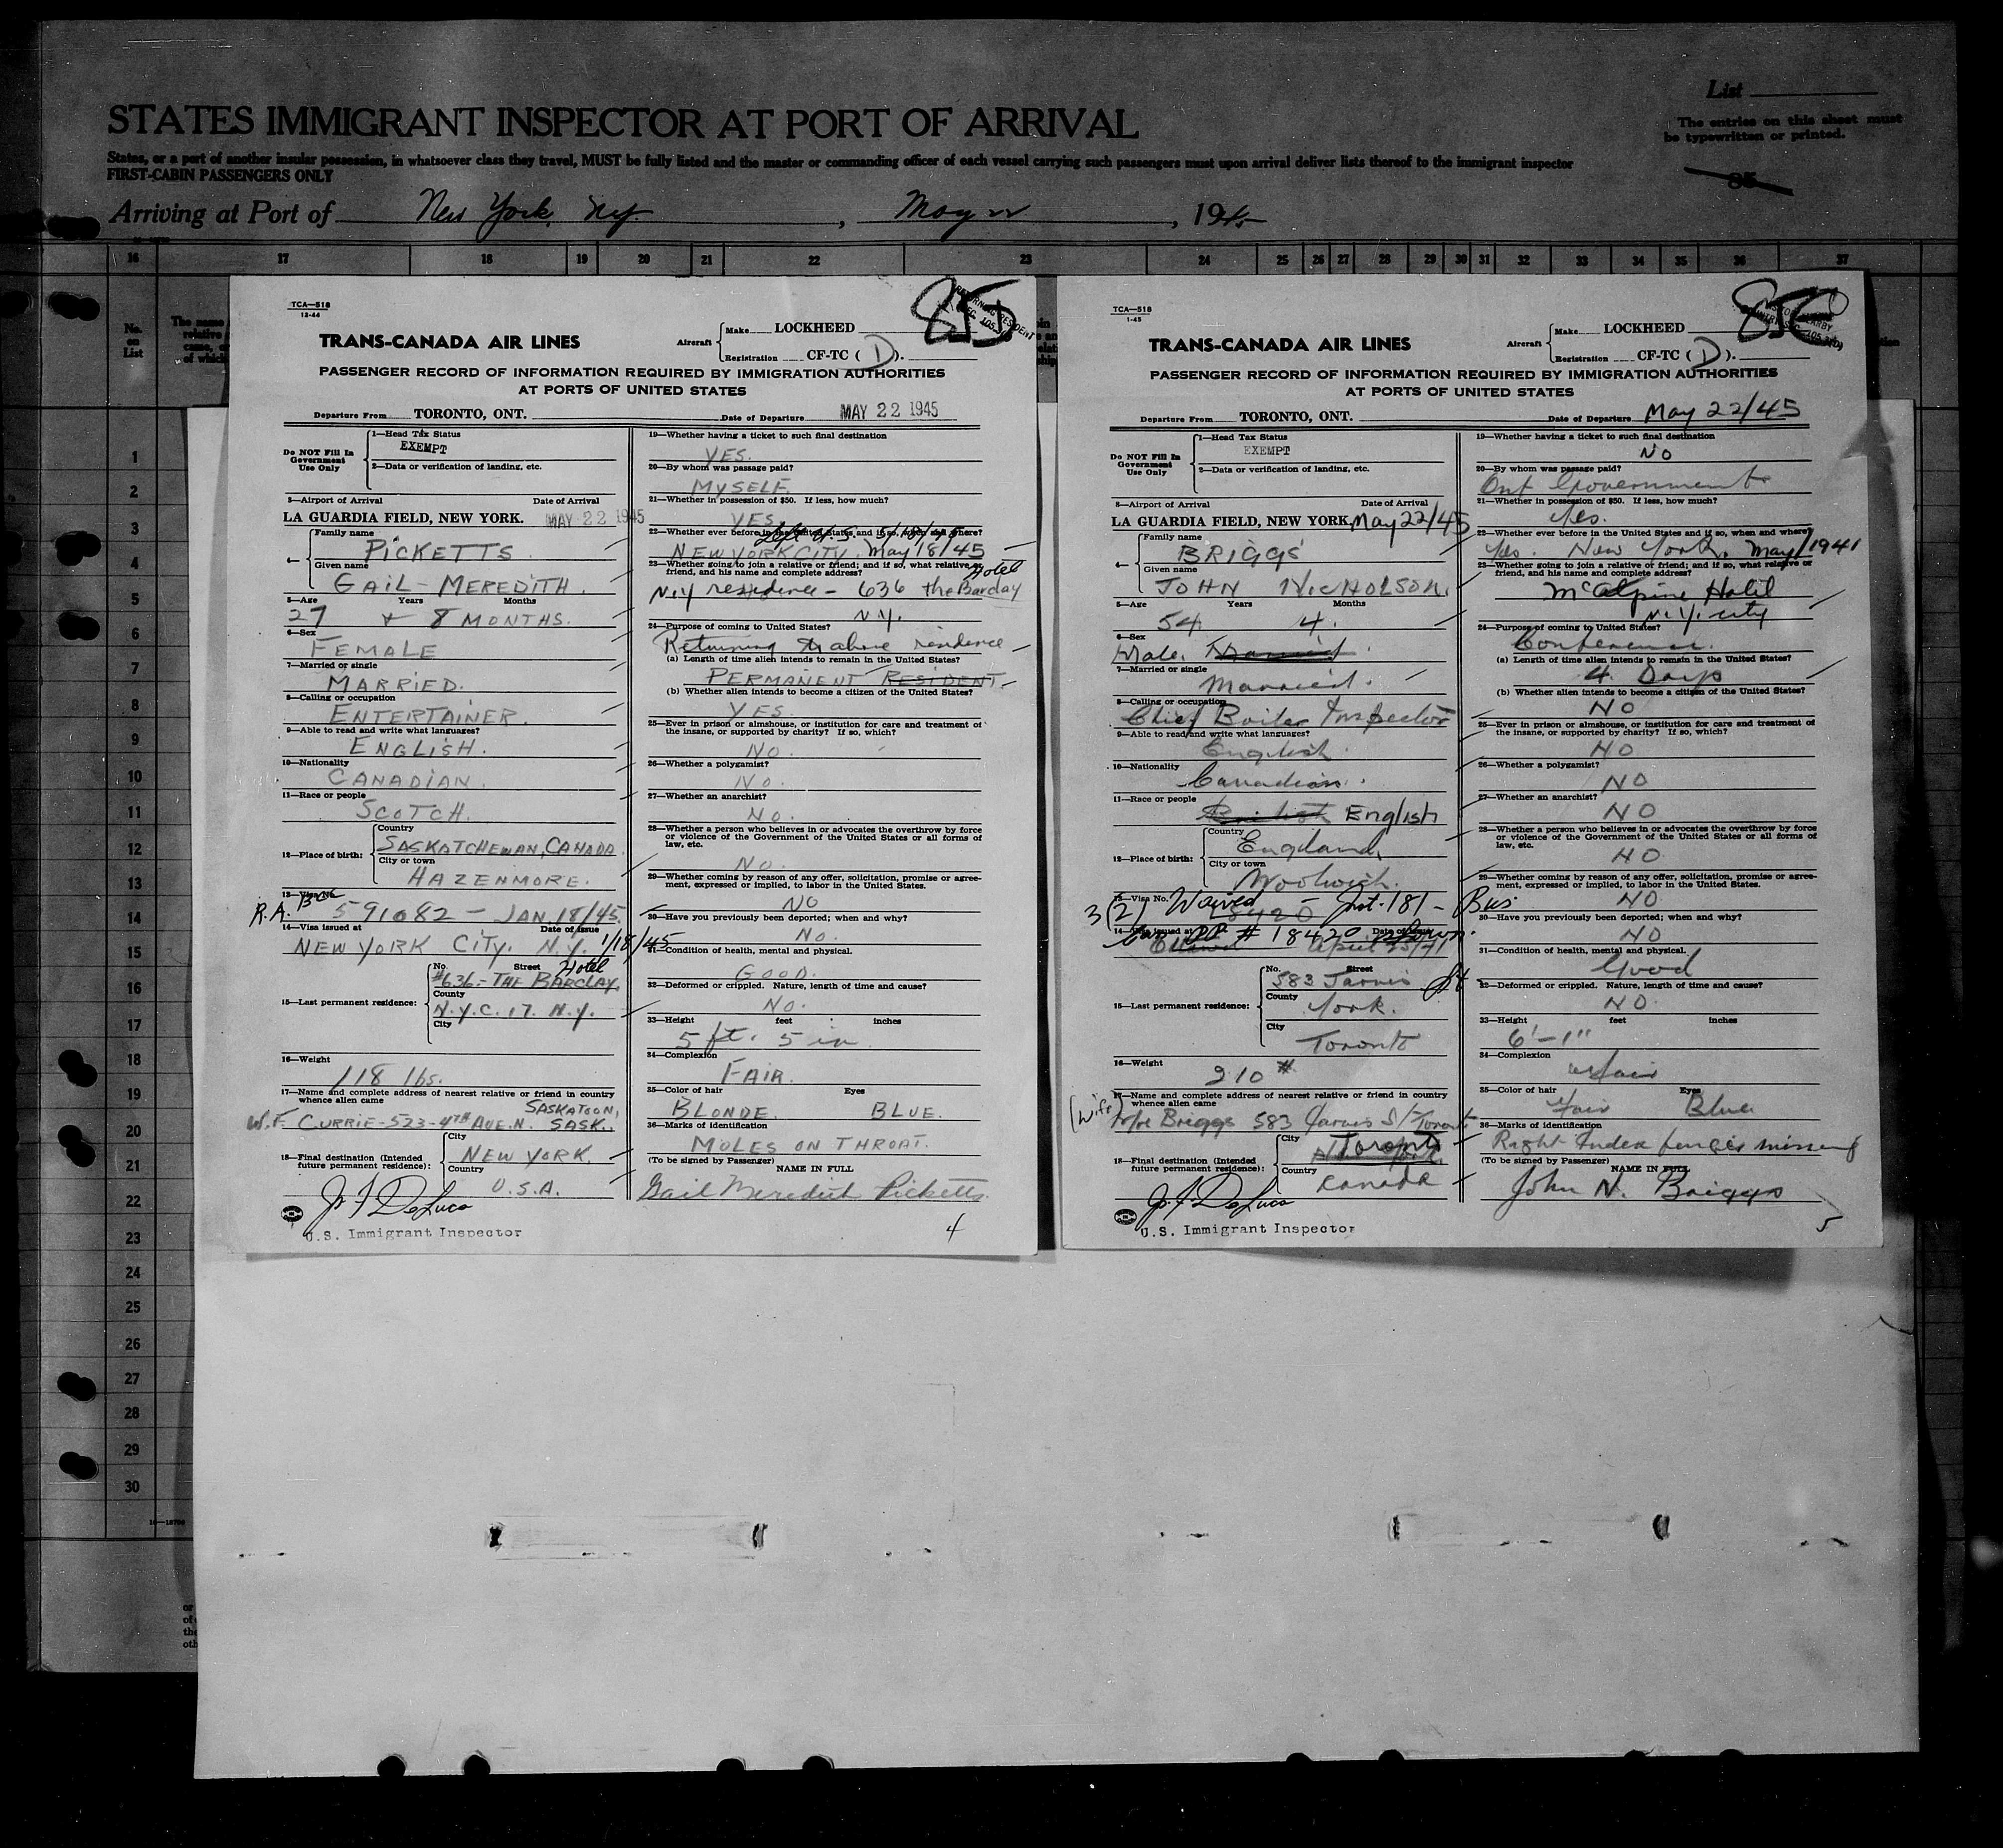 List
STATES IMMIGRANT INSPECTOR AT PORT OF ARRIVAL
The entries on this sheet must
be typewritten or printed.
States, or a port of another insular possession, in whatsoever class they travel, MUST be fully listed and the master or commanding officer of each vessel carrying such passengers must upon arrival deliver lists thereof to the immigrant inspector
FIRST-CABIN PASSENGERS ONLY
85
Arriving at Port of New York, N.Y. , May 22 , 1945
16 17 18 19 20 21 22 23 24 25 26 27 28 29 30 31 32 33 34 35 36 37
No.
on
List
1
2
3
4
5
6
7
8
9
10
11
12
13
14
15
16
17
18
19
20
21
22
23
24
25
26
27
28
29
30
TCA—518
12-44
85D
RETURNING RESIDENT
TRANS-CANADA AIR LINES
Aircraft
Make LOCKHEED
Registration CF-TC ( D ).
PASSENGER RECORD OF INFORMATION REQUIRED BY IMMIGRATION AUTHORITIES
AT PORTS OF UNITED STATES
Departure From TORONTO, ONT. Date of Departure MAY 22 1945
Do NOT Fill In
Government
Use Only
1—Head Tax Status
EXEMPT
2—Data or verification of landing, etc.
3—Airport of Arrival Date of Arrival
LA GUARDIA FIELD, NEW YORK. MAY 22 1945
4— Family name
PICKETTS
Given name
GAIL-MEREDITH.
5—Age Years Months
27 + 8 MONTHS.
6—Sex
FEMALE
7—Married or single
MARRIED.
8—Calling or occupation
ENTERTAINER.
9—Able to read and write what languages?
ENGLISH.
10—Nationality
CANADIAN.
11—Race or people
SCOTCH.
12—Place of birth:
Country
SASKATCHEWAN, CANADA
City or town
HAZENMORE.
13—Visa No.
R.A. 591082 - JAN. 18/45.
14—Visa issued at Date of issue
NEW YORK CITY. N.Y. 1/18/45
15—Last permanent residence:
No. Street Hotel
#636.- THE BARCLAY,
County
N.Y.C. 17. N.Y.
City
16—Weight
118 lbs.
17—Name and complete address of nearest relative or friend in country
whence alien came
SASKATOON,
W.F. CURRIE-523-4TH AVE.N. SASK.
18—Final destination (Intended
future permanent residence):
City
NEW YORK.
Country
U.S.A.
J. J. DeLuca
U.S. Immigrant Inspector
19—Whether having a ticket to such final destination
YES.
20—By whom was passage paid?
MYSELF.
21—Whether in possession of $50. If less, how much?
YES
22—Whether ever before in the United States and if so, when and where?
Left U.S. 5/18/45
NEW YORK CITY. May 18/45
23—Whether going to join a relative or friend; and if so, what relative or
friend, and his name and complete address?
Hotel
N.Y residence - 636 the Barclay
N.Y.
24—Purpose of coming to United States?
Returning to above residence
(a) Length of time alien intends to remain in the United States?
PERMANENT RESIDENT.
(b) Whether alien intends to become a citizen of the United States?
YES.
25—Ever in prison or almshouse, or institution for care and treatment of
the insane, or supported by charity? If so, which?
NO.
26—Whether a polygamist?
NO.
27—Whether an anarchist?
NO.
28—Whether a person who believes in or advocates the overthrow by force
or violence of the Government of the United States or all forms of
law, etc.
NO.
29—Whether coming by reason of any offer, solicitation, promise or agree-
ment, expressed or implied, to labor in the United States.
NO
30—Have you previously been deported; when and why?
NO.
31—Condition of health, mental and physical.
GOOD.
32—Deformed or crippled. Nature, length of time and cause?
NO.
33—Height feet inches
5 ft. 5 in
34—Complexion
FAIR.
35—Color of hair Eyes
BLONDE. BLUE.
36—Marks of identification
MOLES ON THROAT.
(To be signed by Passenger) NAME IN FULL
Gail Meredith Picketts.
4
TCA—518
1-45
85E
TRANS-CANADA AIR LINES
Aircraft
Make LOCKHEED
Registration CF-TC ( D ).
PASSENGER RECORD OF INFORMATION REQUIRED BY IMMIGRATION AUTHORITIES
AT PORTS OF UNITED STATES
Departure From TORONTO, ONT. Date of Departure May 22/45
Do NOT Fill In
Government
Use Only
1—Head Tax Status
EXEMPT
2—Data or verification of landing, etc.
3—Airport of Arrival Date of Arrival
LA GUARDIA FIELD, NEW YORK. May 22/45
4— Family name
BRIGGS
Given name
JOHN NICHOLSON.
5—Age Years Months
54 4.
6—Sex
Male. Married
7—Married or single
Married.
8—Calling or occupation
Chief Boiler Inspector
9—Able to read and write what languages?
English.
10—Nationality
Canadian.
11—Race or people
British English
12—Place of birth:
Country
England,
City or town
Woolwich.
13—Visa No.
3(2) Waived - Inst. 181 - Bus
18420
14—Visa issued at Date of issue
Can PP # 18420
Ottawa April 23/41
15—Last permanent residence:
No. Street
583 Jarvis St
County
York.
City
Toronto
16—Weight
210 #
17—Name and complete address of nearest relative or friend in country
whence alien came
(Wife) Mrs Briggs 583 Jarvis St Toronto
18—Final destination (Intended
future permanent residence):
City
Toronto
Country
Canada
J. J. DeLuca
U.S. Immigrant Inspector
19—Whether having a ticket to such final destination
NO
20—By whom was passage paid?
Ont Government
21—Whether in possession of $50. If less, how much?
Yes.
22—Whether ever before in the United States and if so, when and where?
Yes. New York, May/1941
23—Whether going to join a relative or friend; and if so, what relative or
friend, and his name and complete address?
McAlpine Hotel
N.Y. city
24—Purpose of coming to United States?
Conference.
(a) Length of time alien intends to remain in the United States?
4 Days
(b) Whether alien intends to become a citizen of the United States?
NO
25—Ever in prison or almshouse, or institution for care and treatment of
the insane, or supported by charity? If so, which?
NO
26—Whether a polygamist?
NO
27—Whether an anarchist?
NO
28—Whether a person who believes in or advocates the overthrow by force
or violence of the Government of the United States or all forms of
law, etc.
NO
29—Whether coming by reason of any offer, solicitation, promise or agree-
ment, expressed or implied, to labor in the United States.
NO
30—Have you previously been deported; when and why?
NO
31—Condition of health, mental and physical.
Good
32—Deformed or crippled. Nature, length of time and cause?
NO.
33—Height feet inches
6'-1"
34—Complexion
Fair
35—Color of hair Eyes
Fair Blue
36—Marks of identification
Right Index finger missing
(To be signed by Passenger) NAME IN FULL
John N. Briggs
5